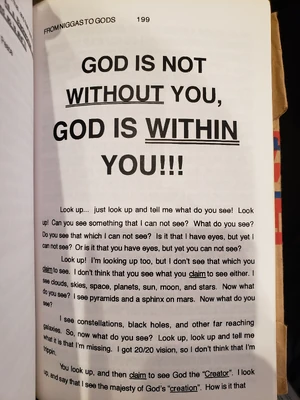 FROM NIGGAS TO GODS 199
GOD IS NOT
WITHOUT YOU,
GOD IS WITHIN
YOU!!!
Look up... just look up and tell me what do you see! Look
up! Can you see something that I can not see? What do you see?
Do you see that which I can not see? Is it that I have eyes, but yet I
can not see? Or is it that you have eyes, but yet you can not see?
Look up! I'm looking up too, but I don't see that which you
claim to see. I don't think that you see what you claim to see either. I
see clouds, skies, space, planets, sun, moon, and stars. Now what
do you see? I see pyramids and a sphinx on mars. Now what do you
see?
I see constellations, black holes, and other far reaching
galaxies. So, now what do you see? Look up, look up and tell me
what it is that I'm missing. I got 20/20 vision, so I don't think that I'm
trippin.
You look up, and then claim to see God the "Creator". I look
up, and say that I see the majesty of God's "creation". How is it that